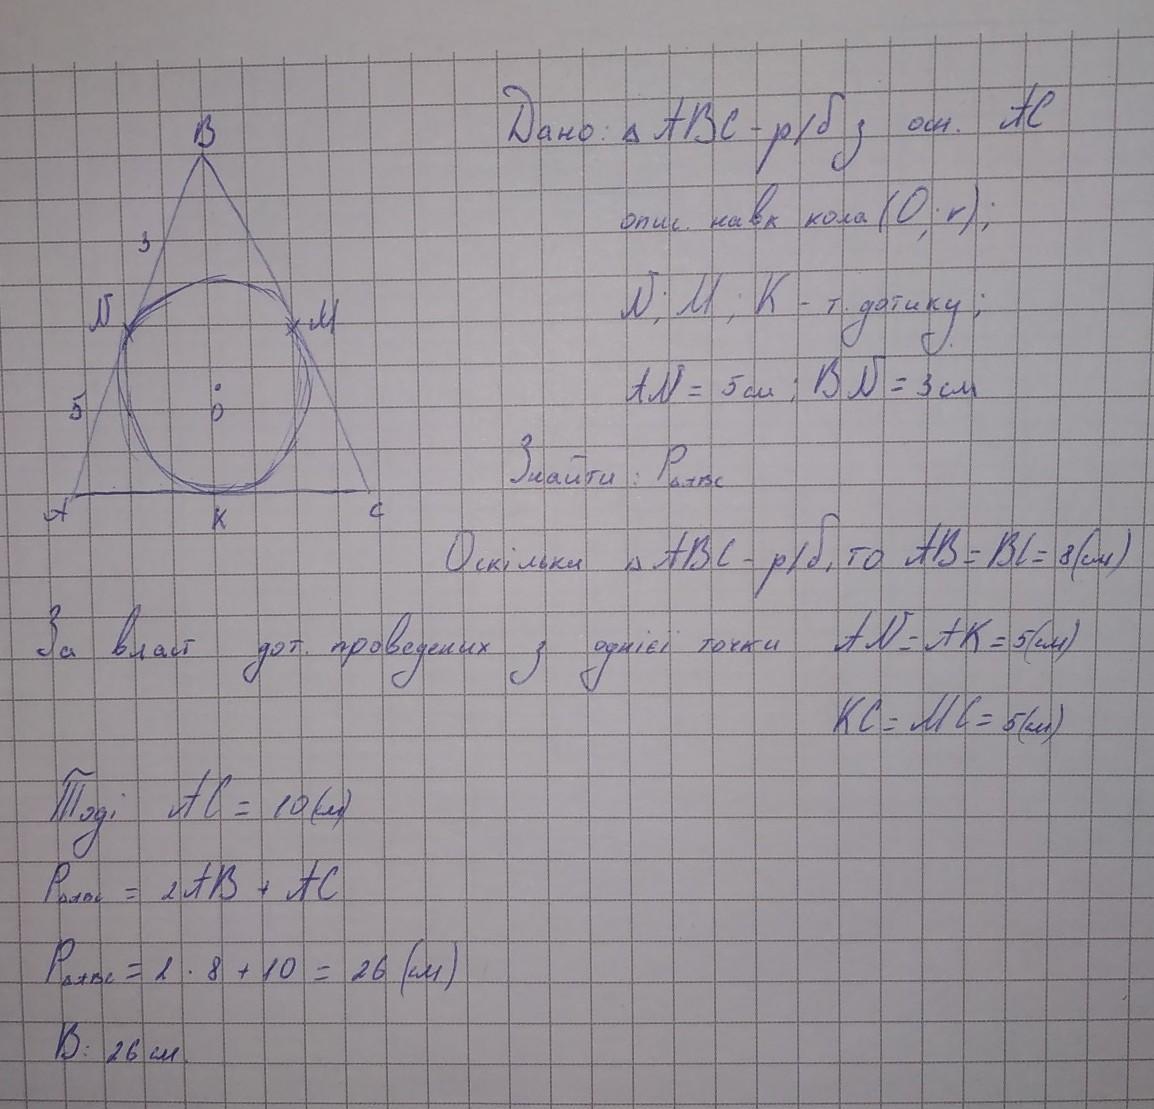 B
3
N
M
5
O
A
K
C
Дано: △ ABC - р/б з осн. AC
опис. навк кола (O; r);
N; M; K - т. дотику;
AN = 5 см; BN = 3 см
Знайти: P△ABC
Оскільки △ ABC - р/б, то AB = BC = 8 (см)
За власт дот. проведених з однієї точки AN = AK = 5 (см)
KC = MC = 5 (см)
Тоді AC = 10 (см)
P△ABC = 2AB + AC
P△ABC = 2 · 8 + 10 = 26 (см)
В: 26 см.